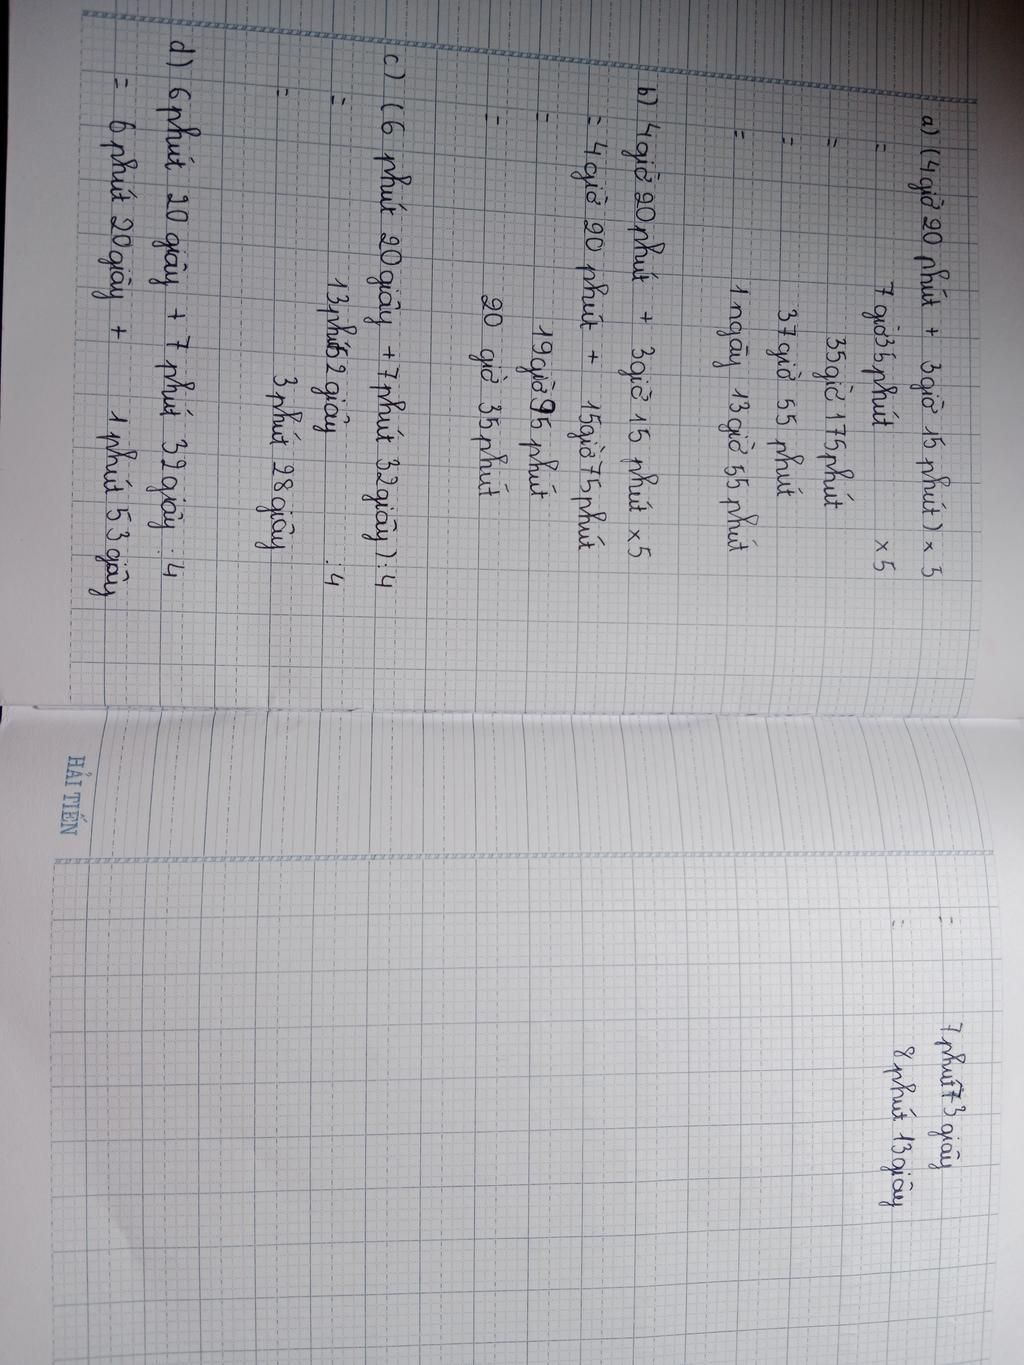 a) (4 giờ 20 phút + 3 giờ 15 phút) x 5
= 7 giờ 35 phút x 5
= 35 giờ 175 phút
= 37 giờ 55 phút
= 1 ngày 13 giờ 55 phút
b) 4 giờ 20 phút + 3 giờ 15 phút x 5
= 4 giờ 20 phút + 15 giờ 75 phút
= 19 giờ 95 phút
= 20 giờ 35 phút
c) (6 phút 20 giây + 7 phút 32 giây) : 4
= 13 phút 52 giây : 4
= 3 phút 28 giây
d) 6 phút 20 giây + 7 phút 32 giây : 4
= 6 phút 20 giây + 1 phút 53 giây
HẢI TIẾN
= 7 phút 73 giây
= 8 phút 13 giây